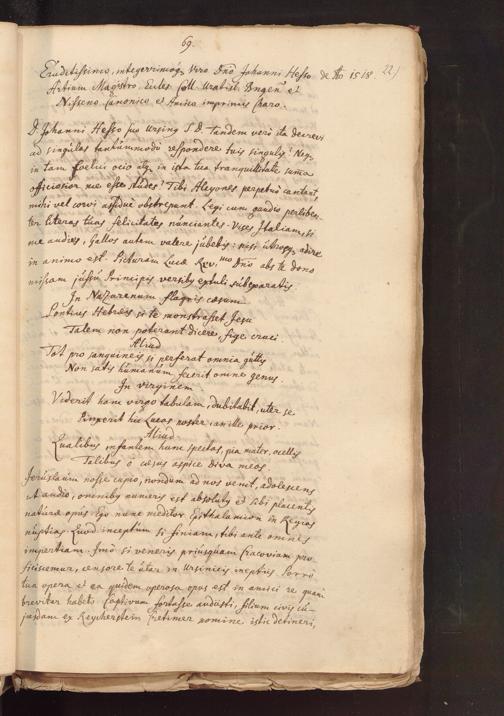 69.
Eruditissimo, integerrimoq. Viro Dño Johanni Hesso de Ao 1518. 221
Artium Magistro. Eccles. Coll. Wratisl. Ungen et
Nisseno Canonico et Amico imprimis Charo.
D. Johanni Hesso suo Ursinq S D. Tandem veni ita decrevi
ad singulas tantummodo respondere tuis singulis? Neq.
in tam foelici ocio atq. in ista tua tranquillitate summa
officiosior me esse studes? Tibi Alcyones perpetuo cantant,
mihi vel corvi assidue obstrepunt. Legi cum gaudio perliben-
ter literas tuas felicitates nunciantes. Vises Italiam, si
me audies, Gallos autem valere jubebis: nisi utrosq. adire
in animo est. Picturam Lucae Rev.mo Dño abs te dono
missam jussu Principis versibq extuli subseparatis.
In Nazarenum flagris caesum
Pontius Hebraeis si te monstrasset Jesu
Talem non poterant dicere, fige cruci.
Aliud
Tot pro sanguineis si perferat omnia guttis
Non satis humanum fecerit omne genus.
In virginem
Viderit hanc virgo tabulam, dubitabit, uter se
Pinxerit hic Lucas noster an ille prior.
Aliud
Qualibus infantem hunc spectas, pia mater, ocellis
Talibus o caesus aspice Diva meos.
nosse cupio, nondum ad nos venit, adolescens
ut audio, omnibq numeris est absolutq et sibi placentis
naturae opus. Ego nunc meditor Epithalamion in Regias
nuptias. Quod inceptum si finiam, tibi ante omnes
impertiam. Imo si veneris priusquam Cracoviam pro
ficiscemur, censore te uter in Ursinicis ineptiis. Porro
tua opera et ea quidem operosa opus est in amici re quam
breviter habeto. Captivum fortasse audisti, filium civis cu-
jusdam ex Reycherstein nomine istic detineri,